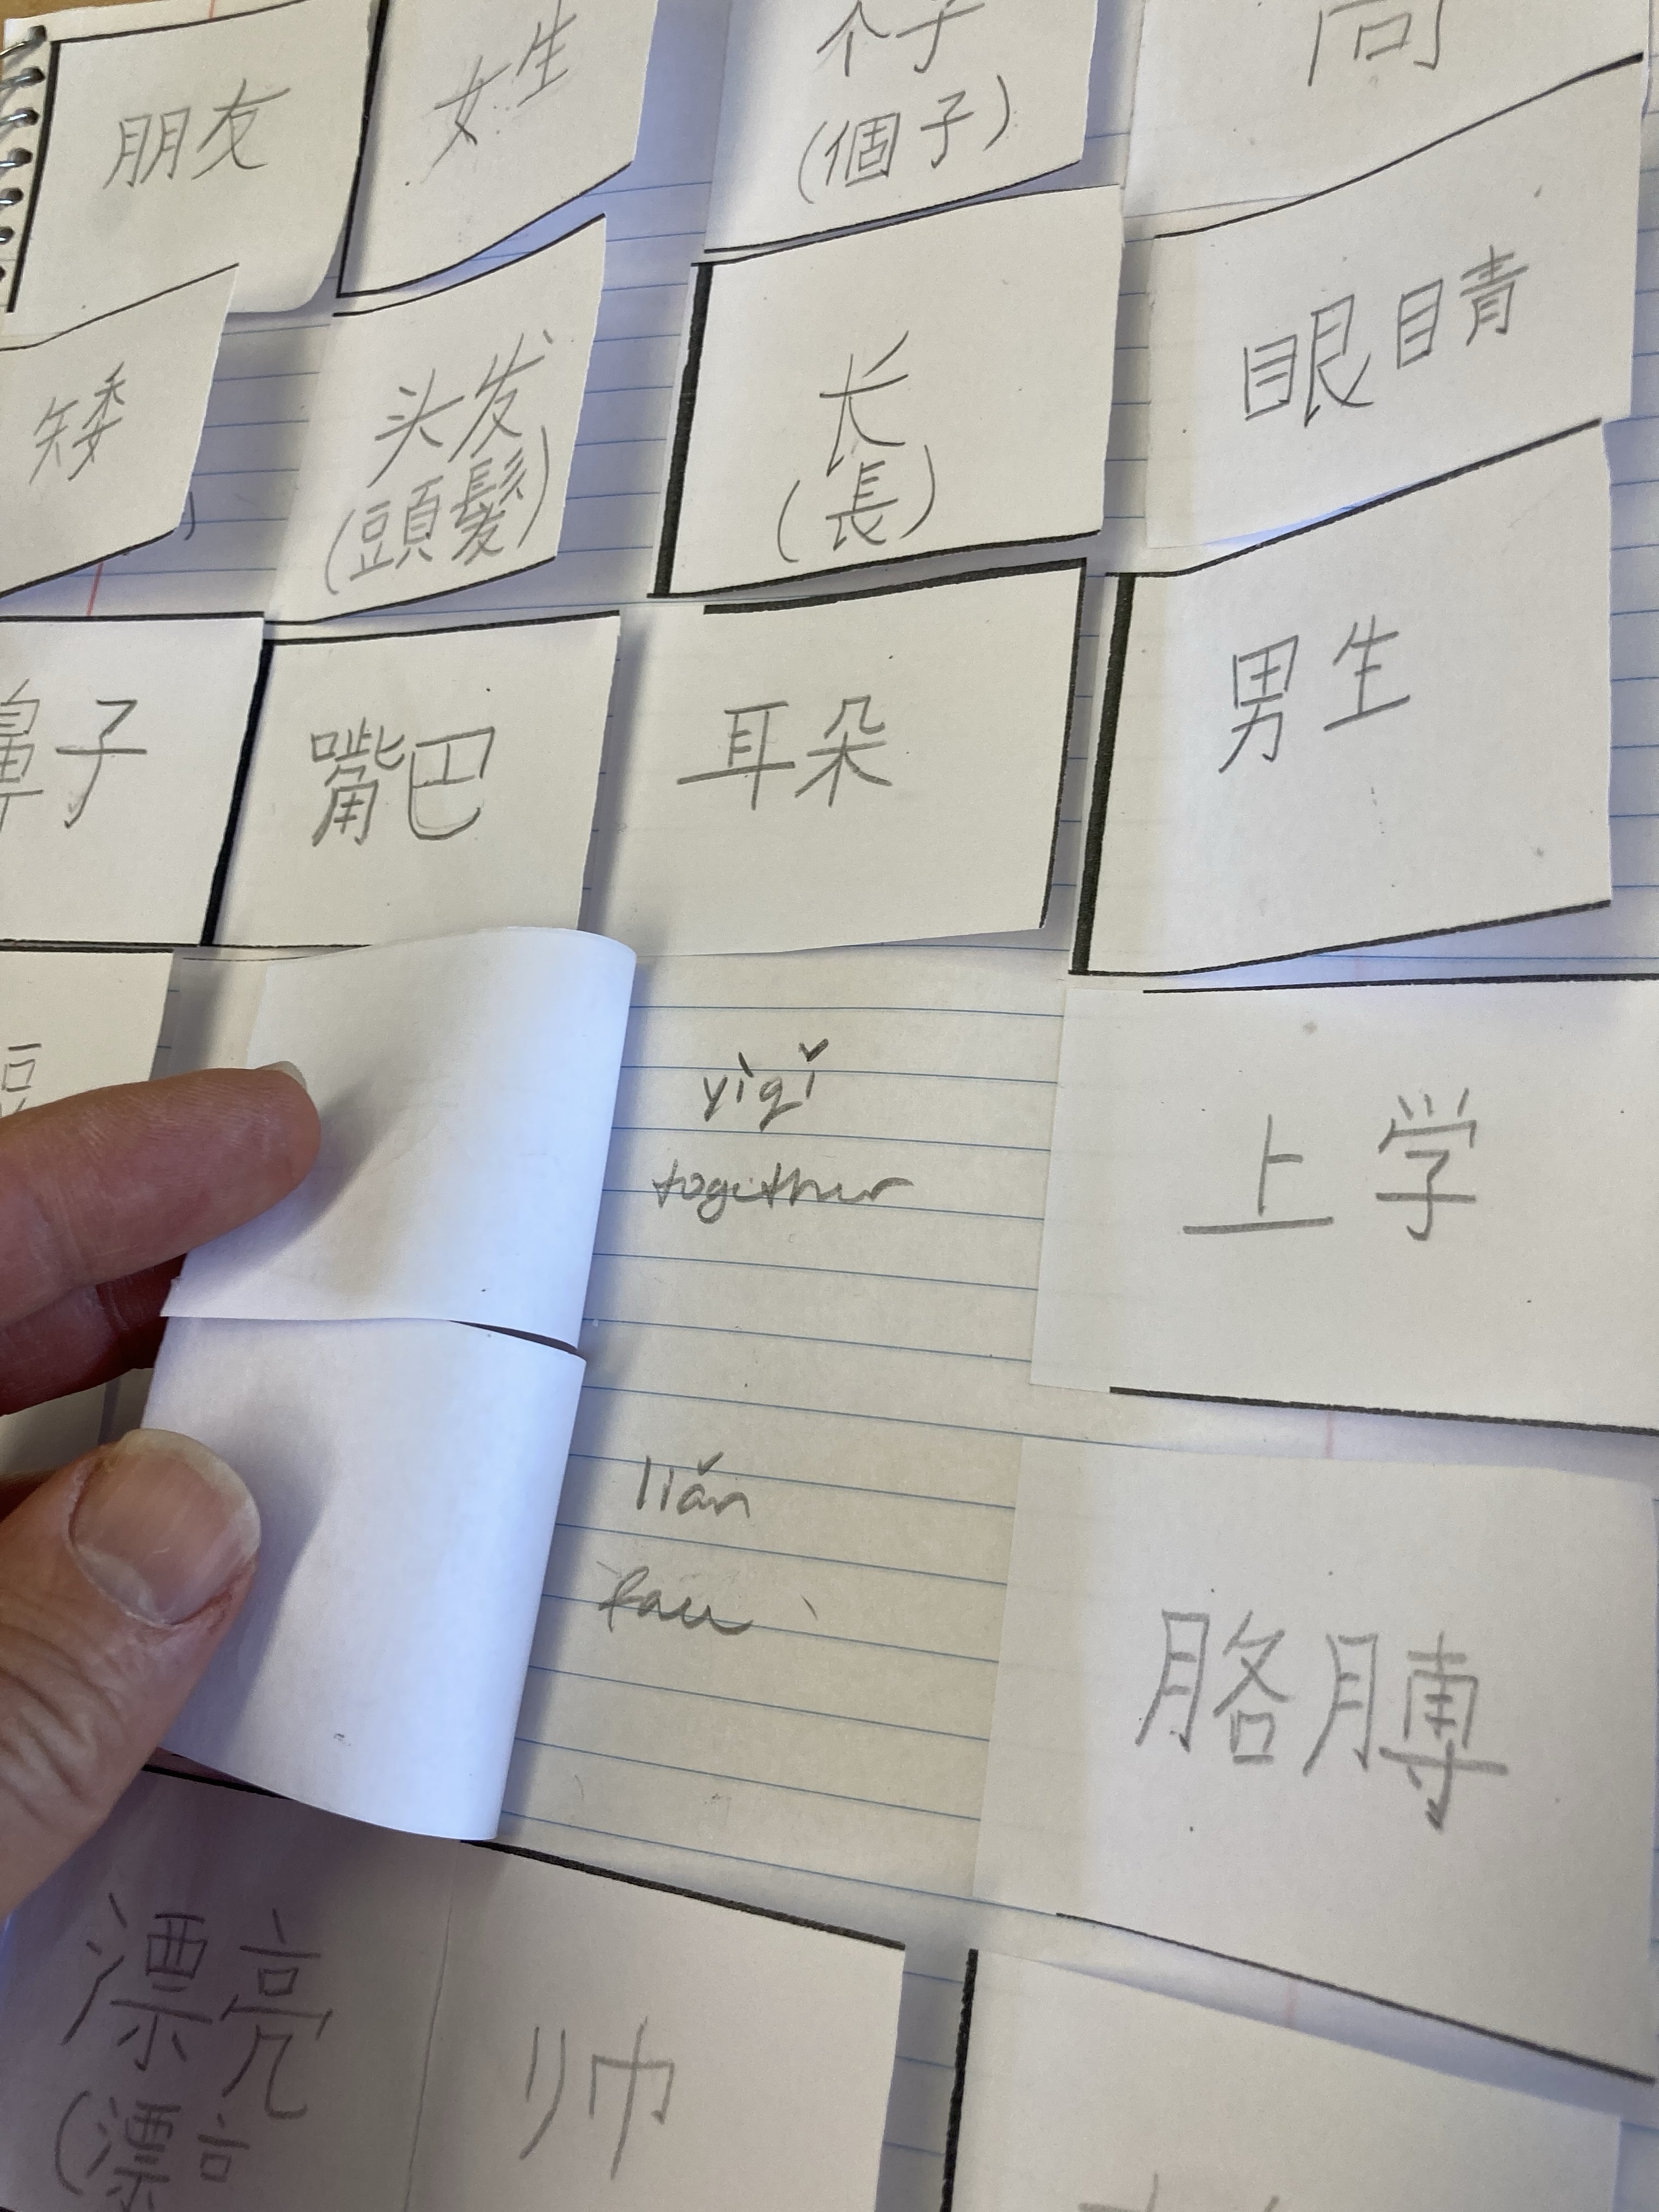 朋友
女生
个子
(個子)
矮
头发
(頭髮)
长
(長)
眼睛
鼻子
嘴巴
耳朵
男生
yìqǐ
together
上学
liǎn
face
胳膊
漂亮
(漂亮
帅